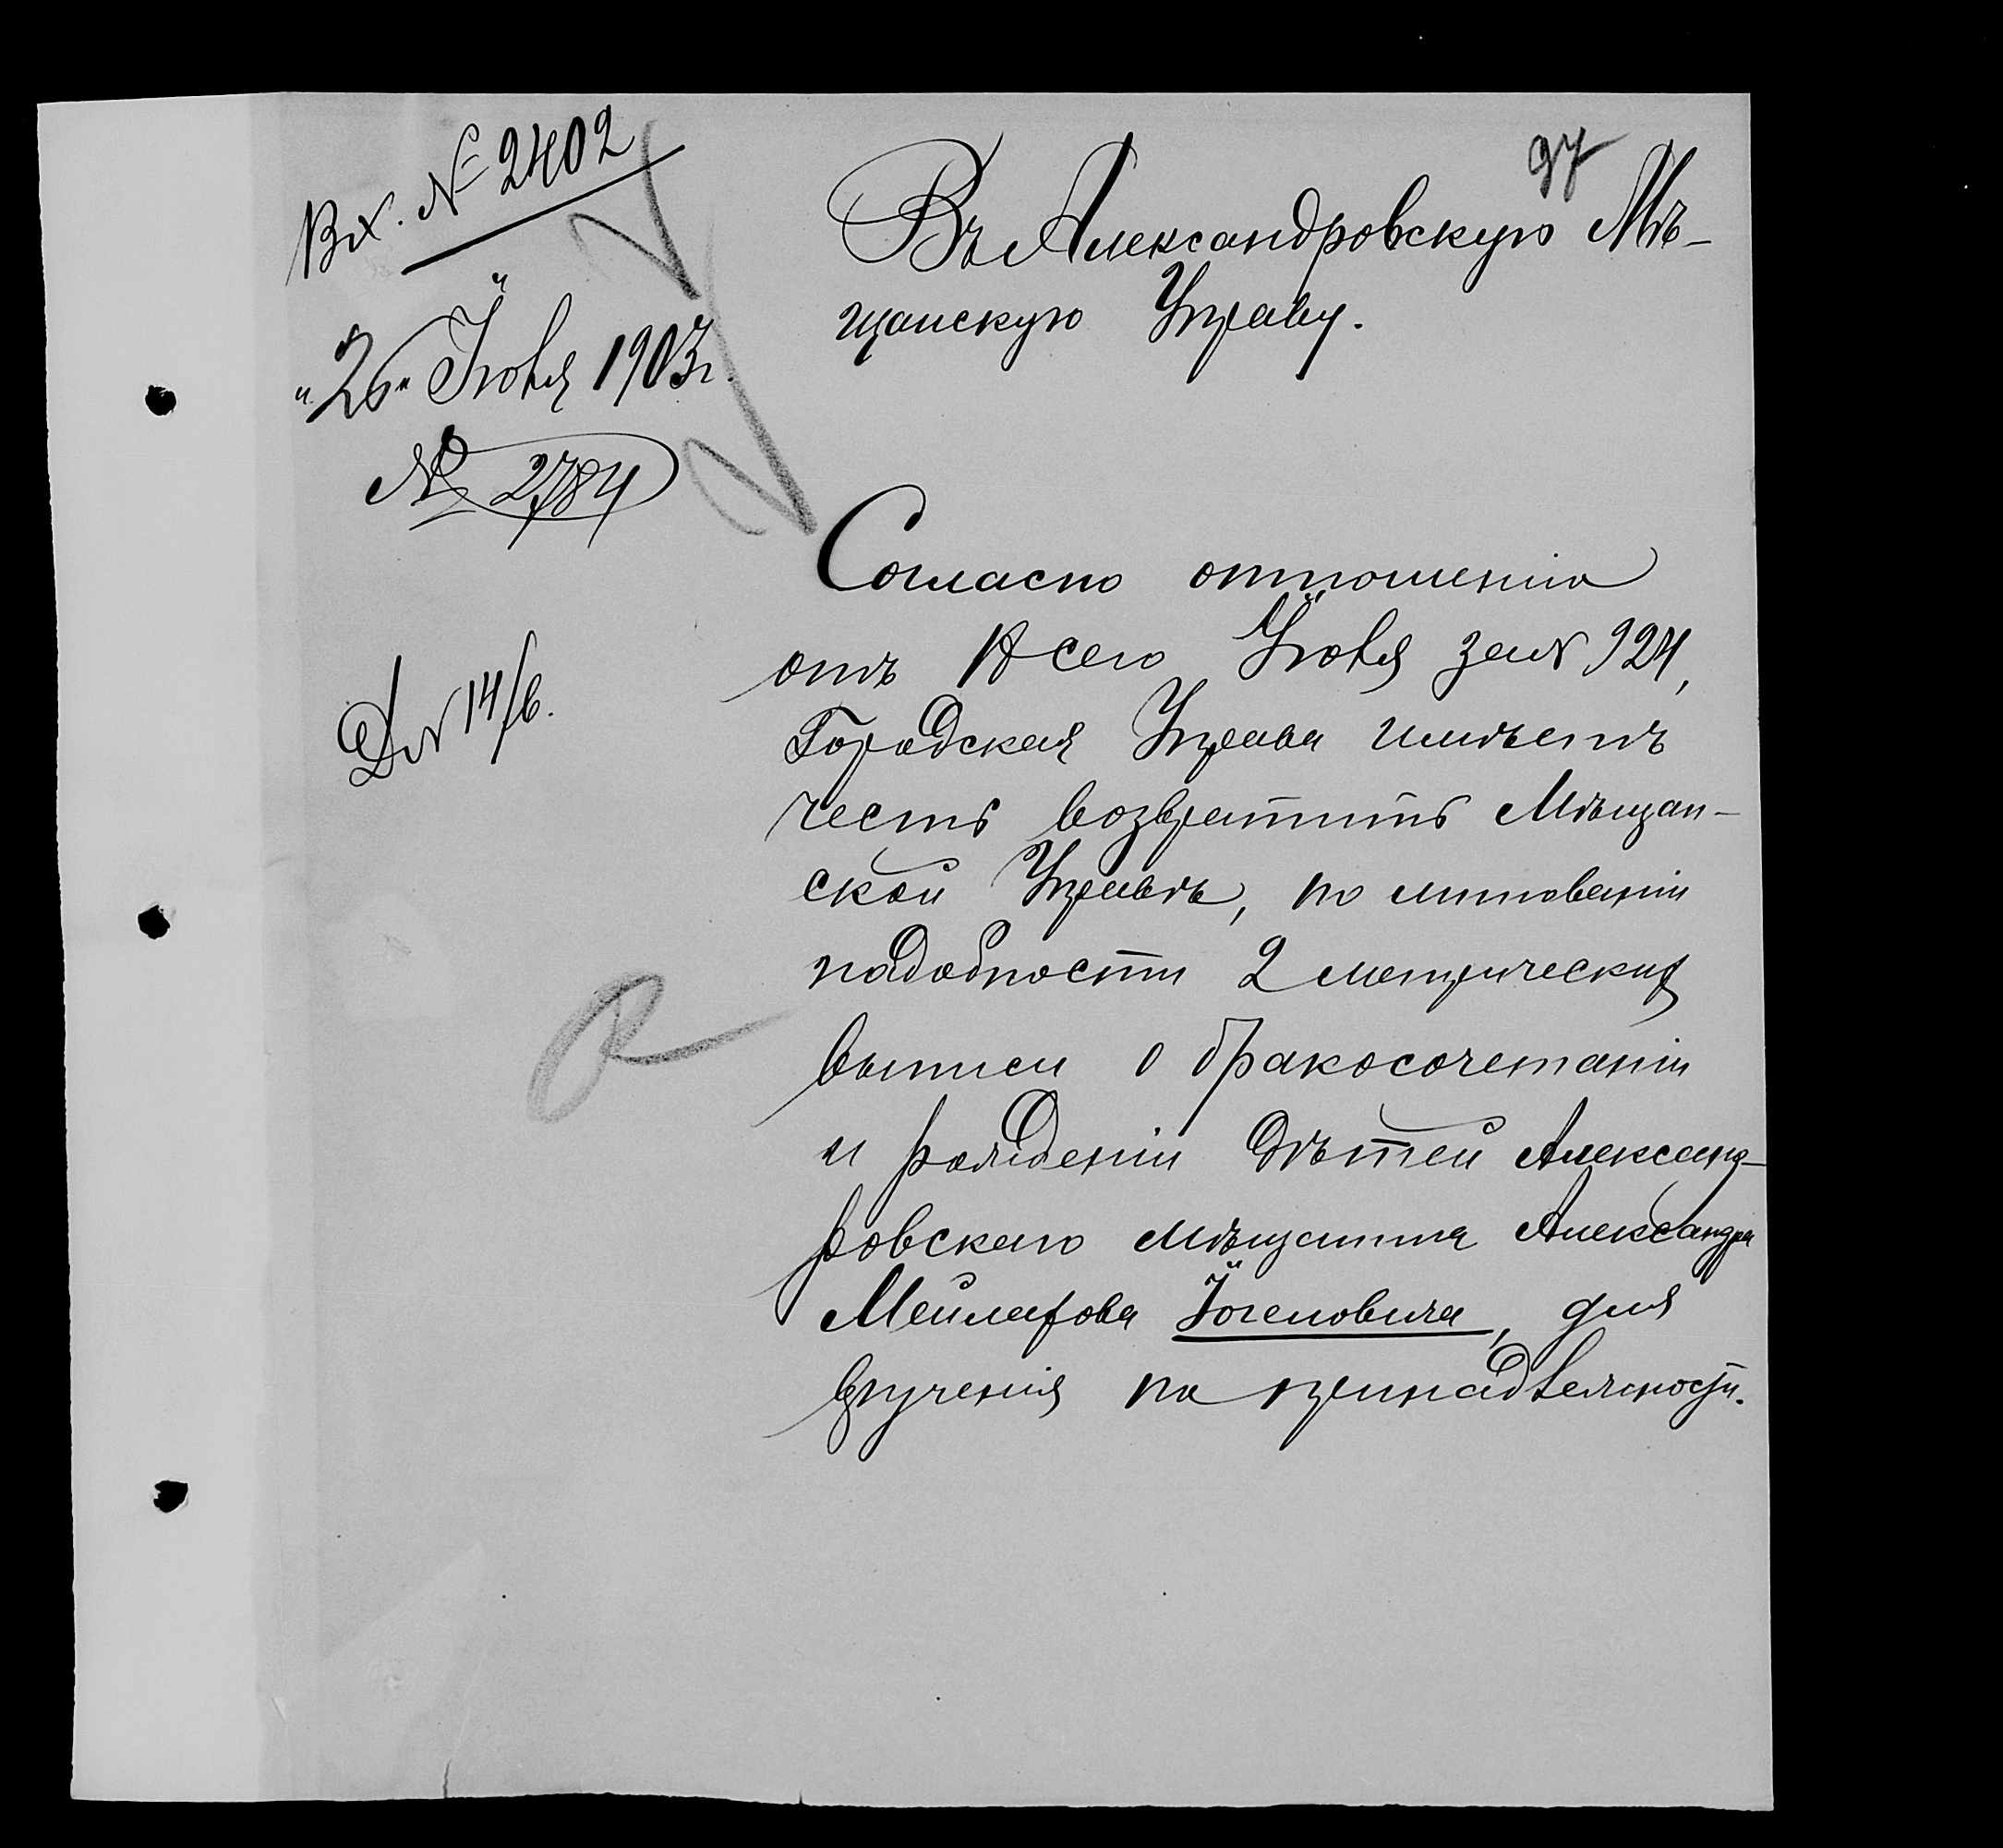 Вх. № 2402
97
Въ Александровскую Мѣ-
щанскую Управу.
"26" Іюня 1903 г.
№ 2784
Согласно отношенію
отъ сего Іюня за № 924,
Городская Управа имѣетъ
честь возвратить Мѣщан-
ской Управѣ, по минованіи
надобности 2 метрическія
выписи о бракосочетаніи
и рожденіи дѣтей Александ-
ровскаго мѣщанина Александра
Мейлахова Іогеловича, для
врученія по принадлежности.